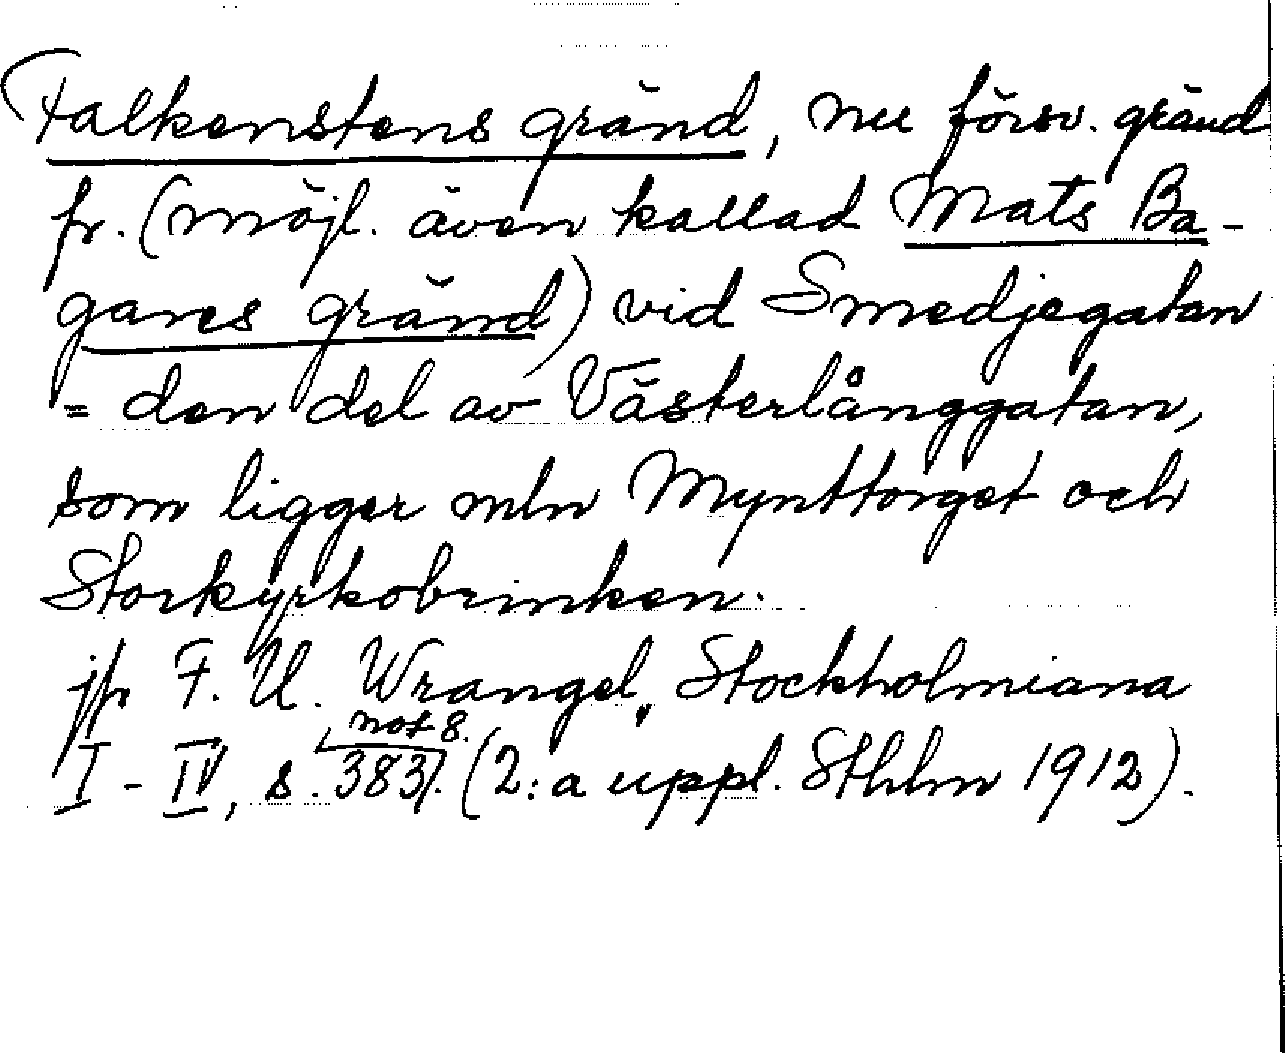 Falkenstens gränd, nu försv. gränd
fr. (möjl. även kallad Mats Ba-
gares gränd) vid Smedjegatan
= den del av Västerlånggatan,
som ligger mln Mynttorget och
Storkyrkobrinken.
jfr F. U. Wrangel, Stockholmiana
not 8.
I - IV, s. 383. (2:a uppl. Sthlm 1912).